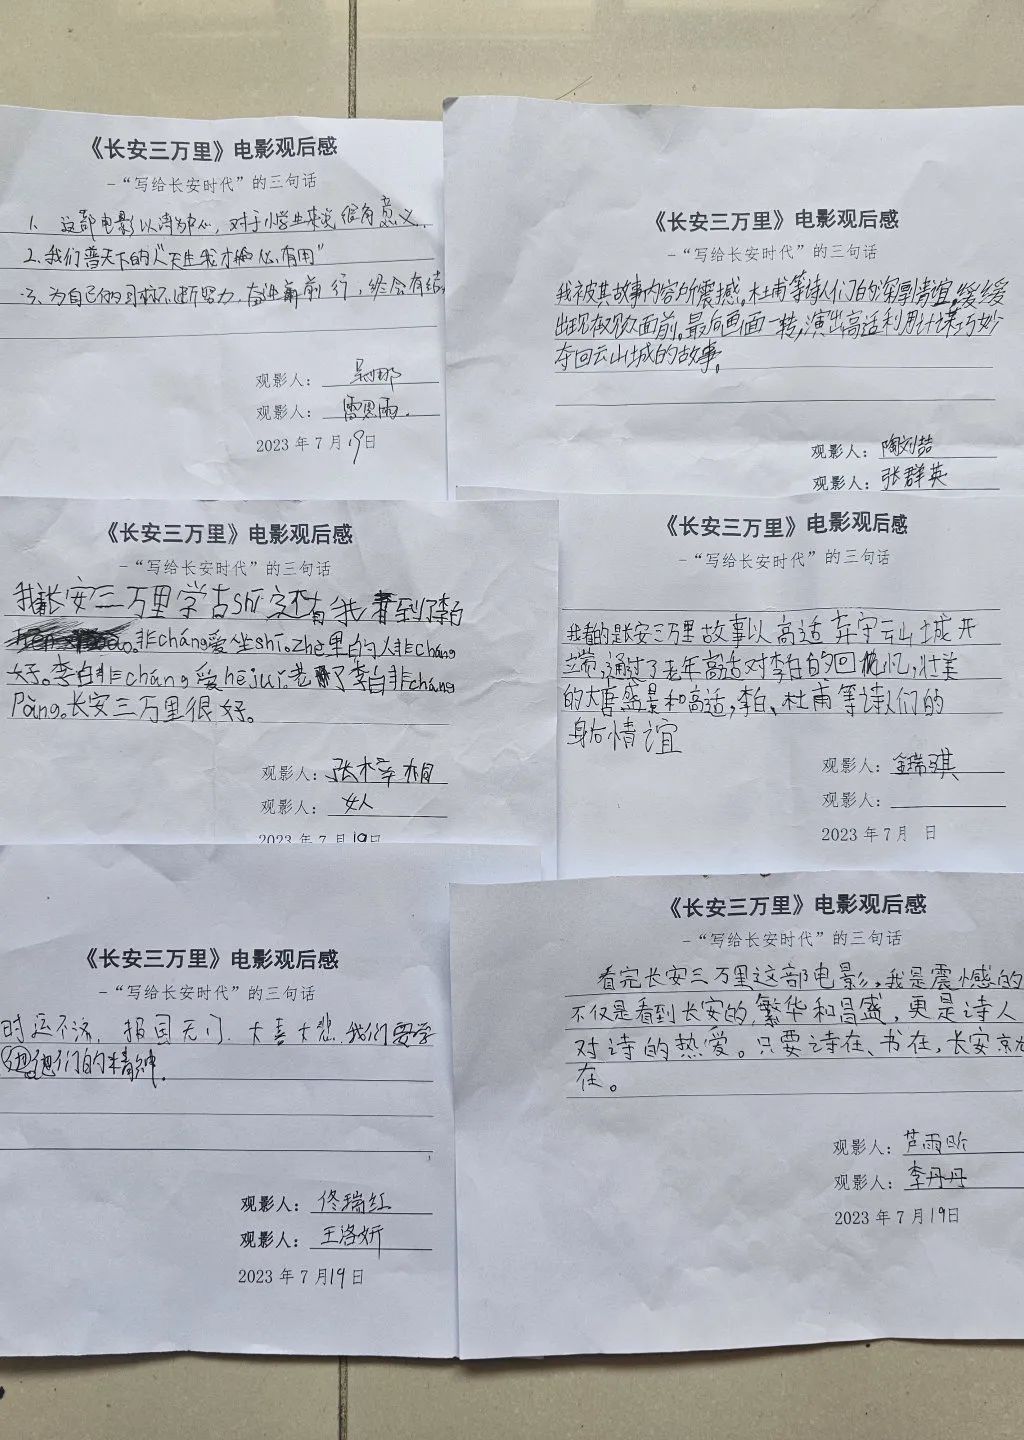 《长安三万里》电影观后感
-“写给长安时代”的三句话
1. 这部电影以诗为中心,对于小学生来说很有意义.
2.我们普天下的“天生我才必有用”
3.为自己的目标不断努力.奋进前行,终会有结
观影人:
观影人:雷思雨.
2023年7月19日
《长安三万里》电影观后感
-“写给长安时代”的三句话
我被其故事内容所震撼.杜甫等诗人们的深厚情谊,缓缓
出现在观众面前.最后画面一转,演出高适利用计谋巧妙
夺回云山城的故事.
观影人:陶刘喆
观影人:张群英
《长安三万里》电影观后感
-“写给长安时代”的三句话
我长安三万里学古shī 我看到了李白
非cháng爱坐shī。zhè里的人非cháng
好。李白非cháng爱hējuǐ。老了李白非cháng
Pàng。长安三万里很好。
观影人:张梓桐
观影人:女人
2023年7月19日
《长安三万里》电影观后感
-“写给长安时代”的三句话
我看的是长安三万里故事以高适弃守云山城开
端,通过了老年高适对李白的回忆,壮美
的大唐盛景和高适,李白、杜甫等诗人们的
身后情谊
观影人:瑞琪
观影人:
2023年7月 日
《长安三万里》电影观后感
-“写给长安时代”的三句话
时运不济,报国无门.大喜大悲.我们要学
他们的精神.
观影人:佟瑞红
观影人:王洛妍
2023年7月19日
《长安三万里》电影观后感
-“写给长安时代”的三句话
看完长安三万里这部电影,我是震憾的
不仅是看到长安的,繁华和昌盛,更是诗人
对诗的热爱。只要诗在、书在,长安就
在。
观影人:芦雨昕
观影人:李丹丹
2023年7月19日